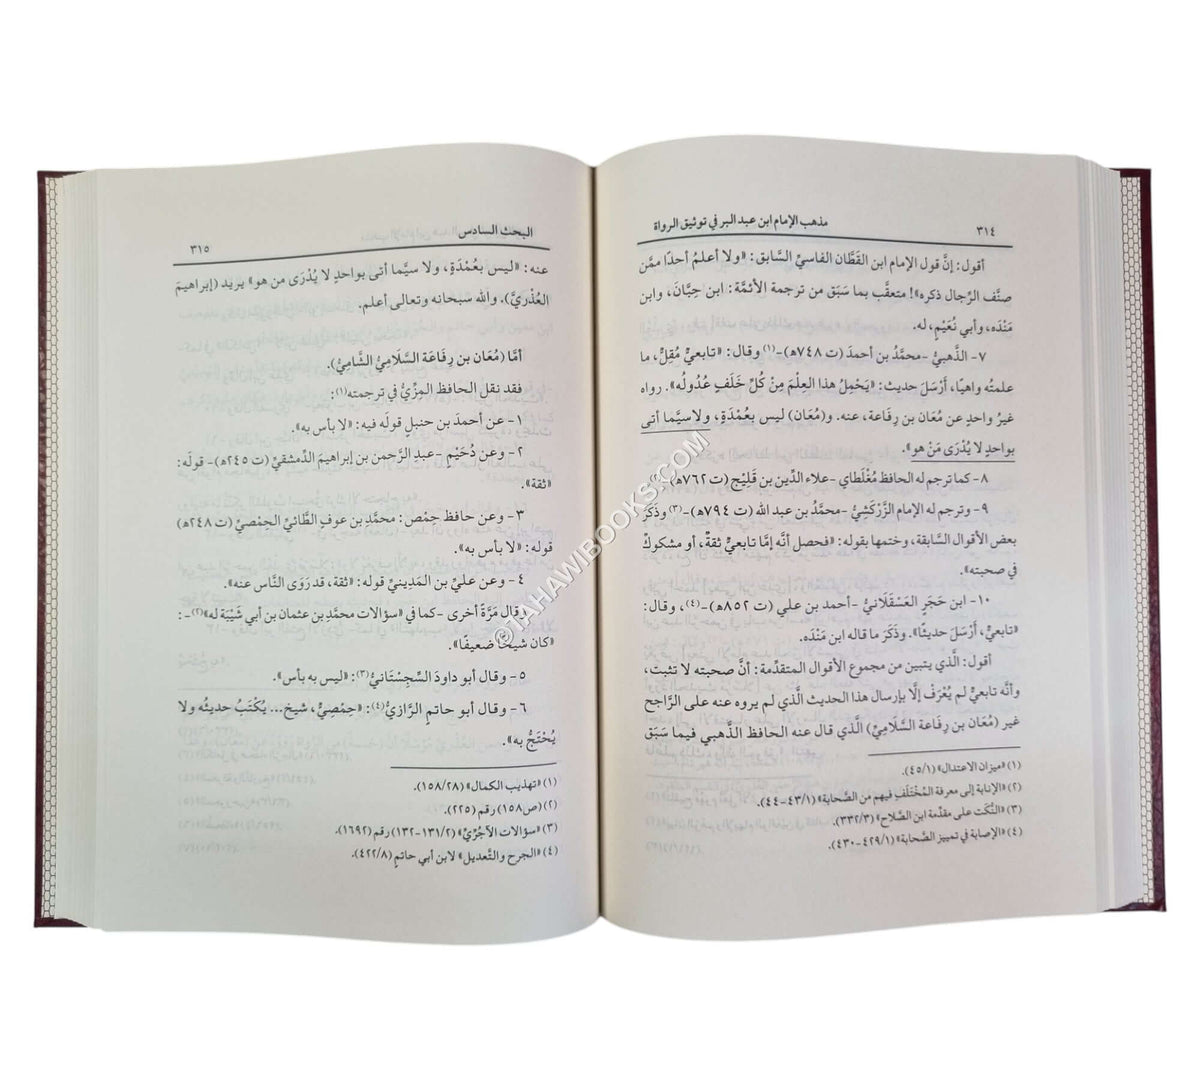 ٣١٤
مذهب الإمام ابن عبد البر في توثيق الرواة
أقول: إنَّ قول الإمام ابن القَطَّان الفاسيِّ السابق: «ولا أعلمُ أحدًا ممَّن
صنَّف الرِّجال ذكره»! متعقَّب بما سَبَق من ترجمة الأئمَّة: ابن حِبَّانَ، وابن
مَنْدَه، وأبي نُعَيْمٍ، له.
٧- الذَّهبيُّ -محمَّدُ بن أحمدَ (ت ٧٤٨هـ)-(١) وقال: «تابعيٌّ مُقِلٌّ، ما
علمتُه واهيًا، أَرْسَلَ حديث: «يَحْمِلُ هذا العِلْمَ مِنْ كُلِّ خَلَفٍ عُدُولُه». رواه
غيرُ واحدٍ عن مُعَان بن رِفَاعة، عنه. و(مُعَان) ليس بعُمْدَةٍ، ولا سيَّما أتى
بواحدٍ لا يُدْرَى مَنْ هو».
٨- كما ترجم له الحافظ مُغْلَطاي -علاء الدِّين بن قَلِيْج (ت ٧٦٢هـ)
٩- وترجم له الإمام الزَّرْكَشِيُّ -محمَّدُ بن عبد الله (ت ٧٩٤هـ)-(٣) وذكَرَ
بعض الأقوال السَّابقة، وختمها بقوله: «فحصل أنَّه إمَّا تابعيٌّ ثقةٌ، أو مشكوكٌ
في صحبته».
١٠- ابن حَجَرٍ العَسْقَلَانيُّ -أحمد بن علي (ت ٨٥٢هـ)-(٤)، وقال:
«تابعيٌّ، أَرْسَلَ حديثًا». وذَكَرَ ما قاله ابن مَنْدَه.
أقول: الَّذي يتبين من مجموع الأقوال المتقدِّمة: أنَّ صحبته لا تثبت،
وأنَّه تابعيٌّ لم يُعْرَفْ إلَّا بإرسال هذا الحديث الَّذي لم يروه عنه على الرَّاجح
غير (مُعَان بن رِفَاعة السَّلَامِيِّ) الَّذي قال عنه الحافظ الذَّهبي فيما سَبَقَ
(١) «ميزان الاعتدال» (٤٥/١).
(٢) «الإنابة إلى معرفة المُخْتَلَفِ فيهم من الصَّحابة» (٤٣/١-٤٤).
(٣) «النُّكَت على مقدِّمة ابن الصَّلاح» (٣٣٢/٣).
(٤) «الإصابة في تمييز الصَّحابة» (٤٢٩/١-٤٣٠).
البحث السادس
٣١٥
عنه: «ليس بعُمْدَةٍ، ولا سيَّما أتى بواحدٍ لا يُدْرَى من هو» يريد (إبراهيمَ
العُذْريَّ). والله سبحانه وتعالى أعلم.
أمَّا (مُعَان بن رِفَاعَة السَّلَامِيِّ الشَّامِيِّ).
فقد نقل الحافظ المِزِّيُّ في ترجمته(١):
١- عن أحمدَ بن حنبلٍ قولَه فيه: «لا بأس به».
٢- وعن دُحَيْم -عبد الرَّحمن بن إبراهيمَ الدِّمشقيِّ (ت ٢٤٥هـ)- قولَه:
«ثقة».
٣- وعن حافظِ حِمْص: محمَّدِ بن عوفٍ الطَّائيِّ الحِمْصِيِّ (ت ٢٤٨هـ)
قوله: «لا بأس به».
٤- وعن عليِّ بن المَدِينيِّ قولَه: «ثقة، قد رَوَى النَّاس عنه».
وقال مَرَّةً أخرى -كما في «سؤالات محمَّد بن عثمان بن أبي شَيْبَة له»(٢)-:
«كان شيخًا ضعيفًا».
٥- وقال أبو داودَ السِّجِسْتَانيُّ(٣): «ليس به بأس».
٦- وقال أبو حاتمٍ الرَّازيُّ(٤): «حِمْصِيٌّ، شيخ... يُكْتَبُ حديثُه ولا
يُحْتَجُّ به».
(١) «تهذيب الكمال» (١٥٨/٢٨).
(٢) (ص١٥٨) رقم (٢٢٥).
(٣) «سؤالات الآجُرِّيِّ» (١٣١/٢-١٣٢) رقم (١٦٩٢).
(٤) «الجرح والتَّعديل» لابن أبي حاتم (٤٢٢/٨).
©TAHAWIBOOKS.COM